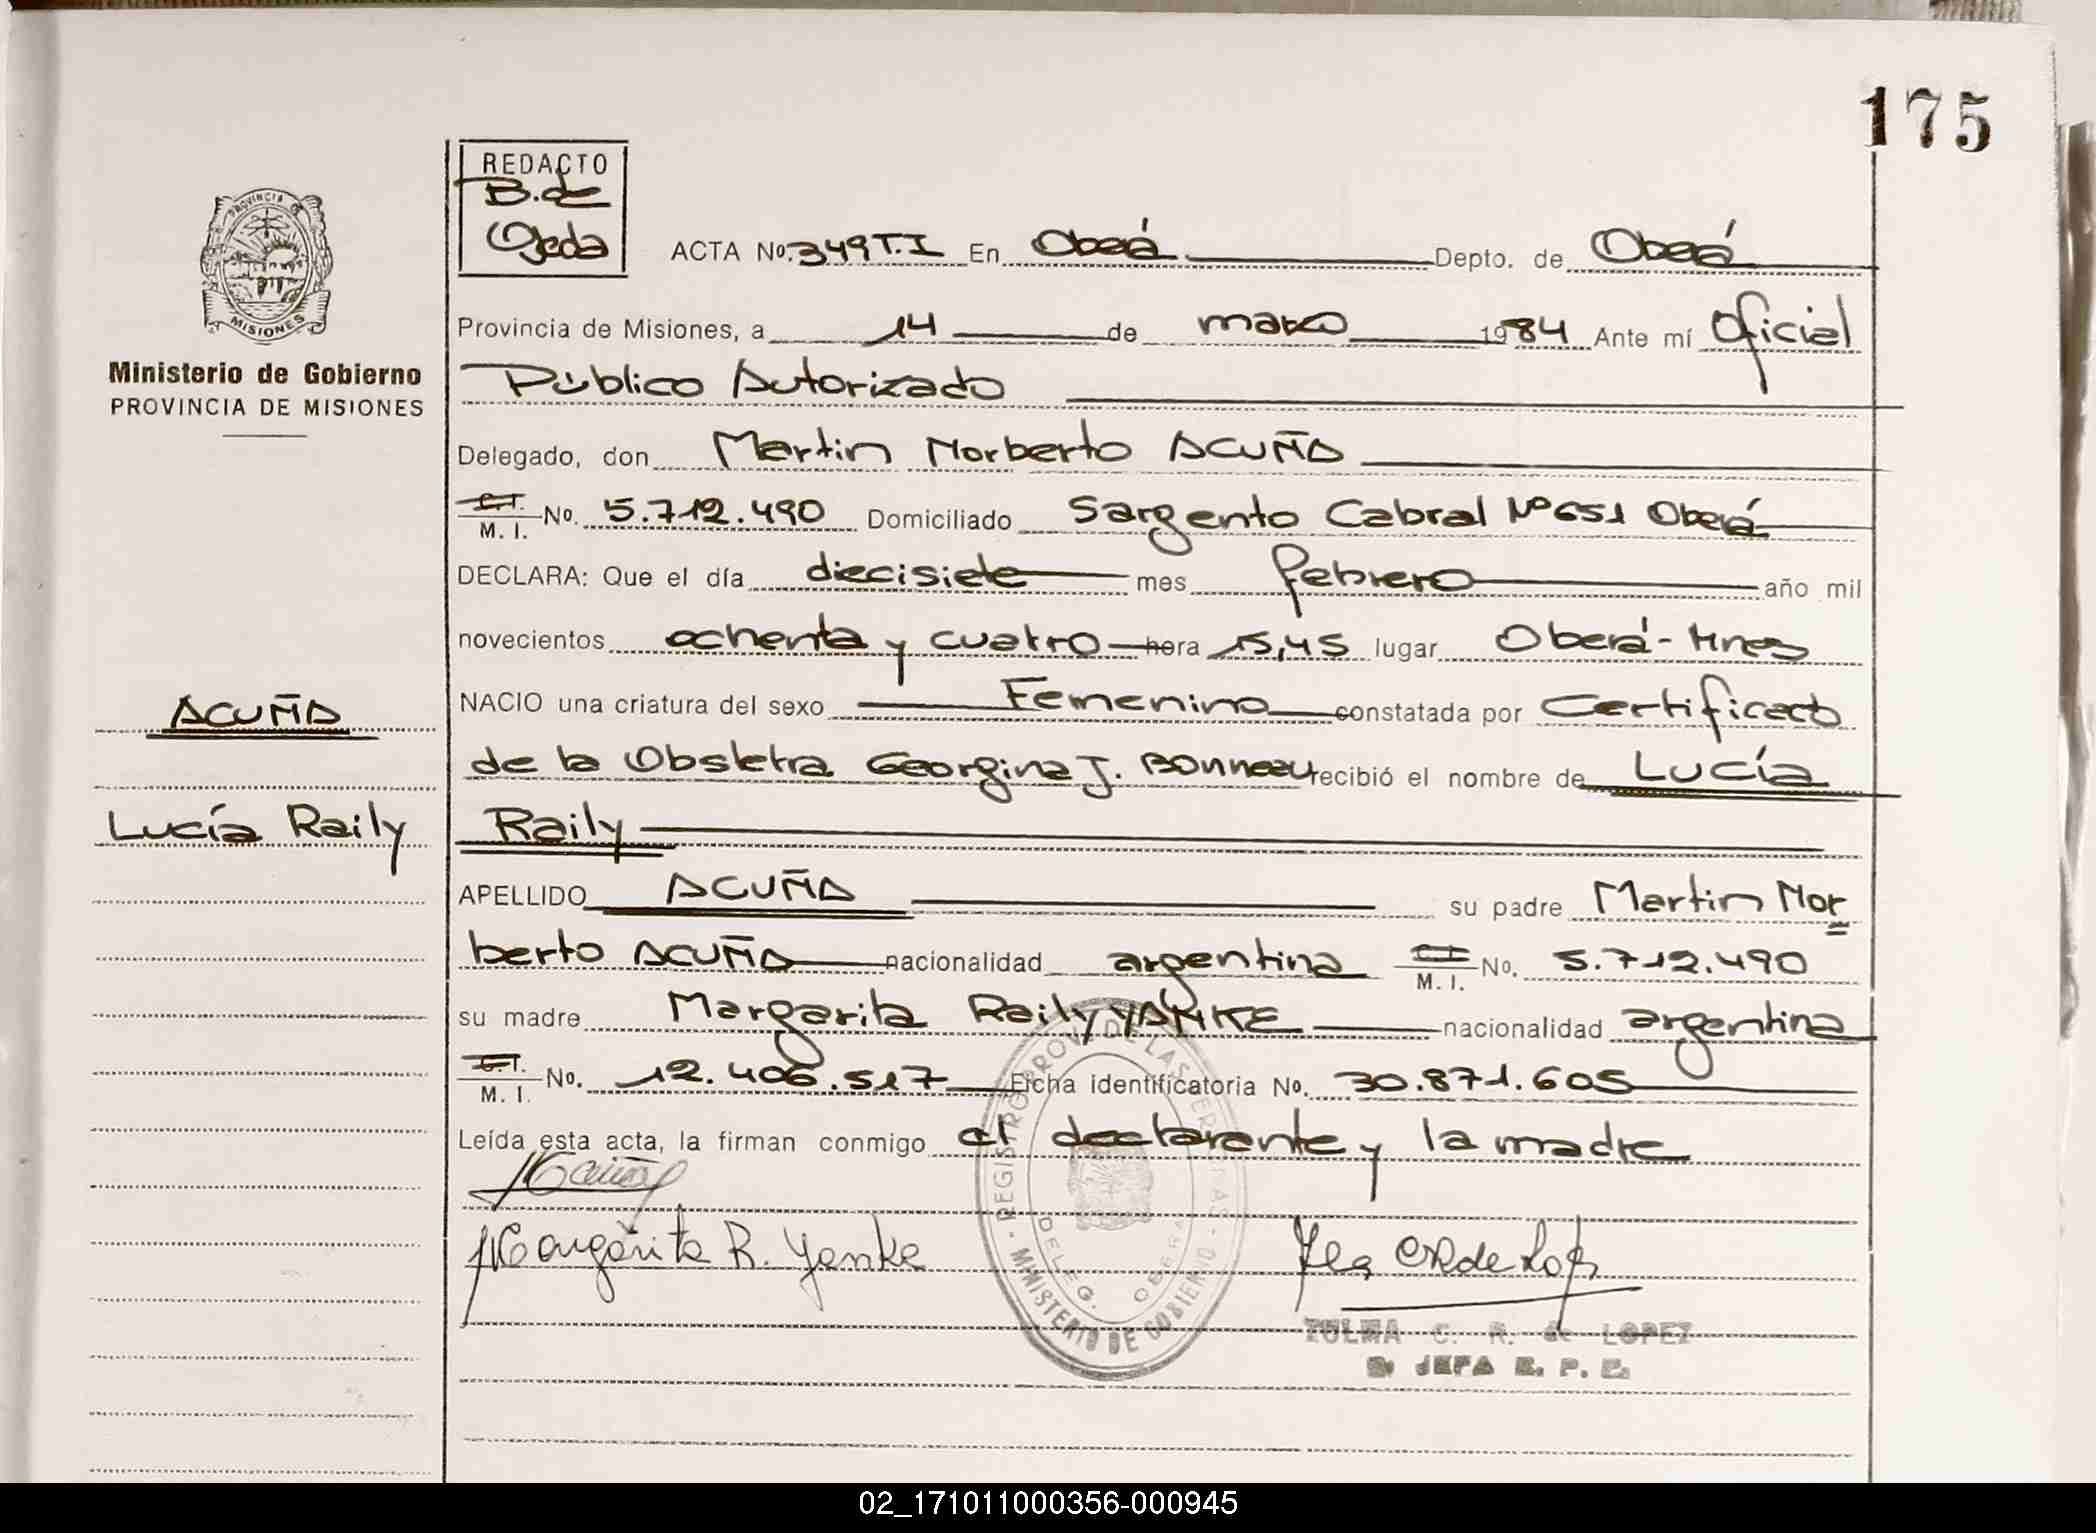 175
REDACTO
B. de
Ojeda
ACTA No. 349 T.I En Oberá Depto. de Oberá
PROVINCIA DE
MISIONES
Provincia de Misiones, a 14 de marzo 1984 Ante mí Oficial
Ministerio de Gobierno
PROVINCIA DE MISIONES
Público Autorizado
Delegado, don Martin Norberto ACUÑA
C.I. M. I. No. 5.712.490 Domiciliado Sargento Cabral Nº 651 Oberá
DECLARA: Que el día diecisiete mes febrero año mil
novecientos ochenta y cuatro hora 15,45 lugar Oberá - Mnes
NACIO una criatura del sexo Femenino constatada por Certificado
ACUÑA
de la Obstetra Georgina J. BONNEAU recibió el nombre de Lucía
Lucía Raily
Raily
APELLIDO ACUÑA su padre Martin Nor
berto ACUÑA nacionalidad argentina C.I. M. I. No. 5.712.490
su madre Margarita Raily YANKE nacionalidad argentina
C.I. M. I. No. 12.406.517 Ficha identificatoria No. 30.871.605
Leída esta acta, la firman conmigo el declarante y la madre
Margarita R. Yanke
REGISTRO PROV. DE LAS PERSONAS
DELEG. OBERA
MINISTERIO DE GOBIERNO
ZULMA C. R. de LOPEZ
JEFA
02_171011000356-000945